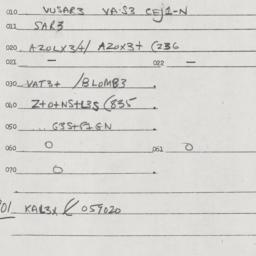 010 VUSAR3 VA:S3 CEJ1-N
011 SAR3
020 AZOLX34/ AZOX3+ (236
021 — 022 —
030 VAT3+ /BLOMB3
040 Z+O+NS+L3S (835
050 ... G3S+P1GN
060 O 061 O
070 O
901 KAR3X ( 059020